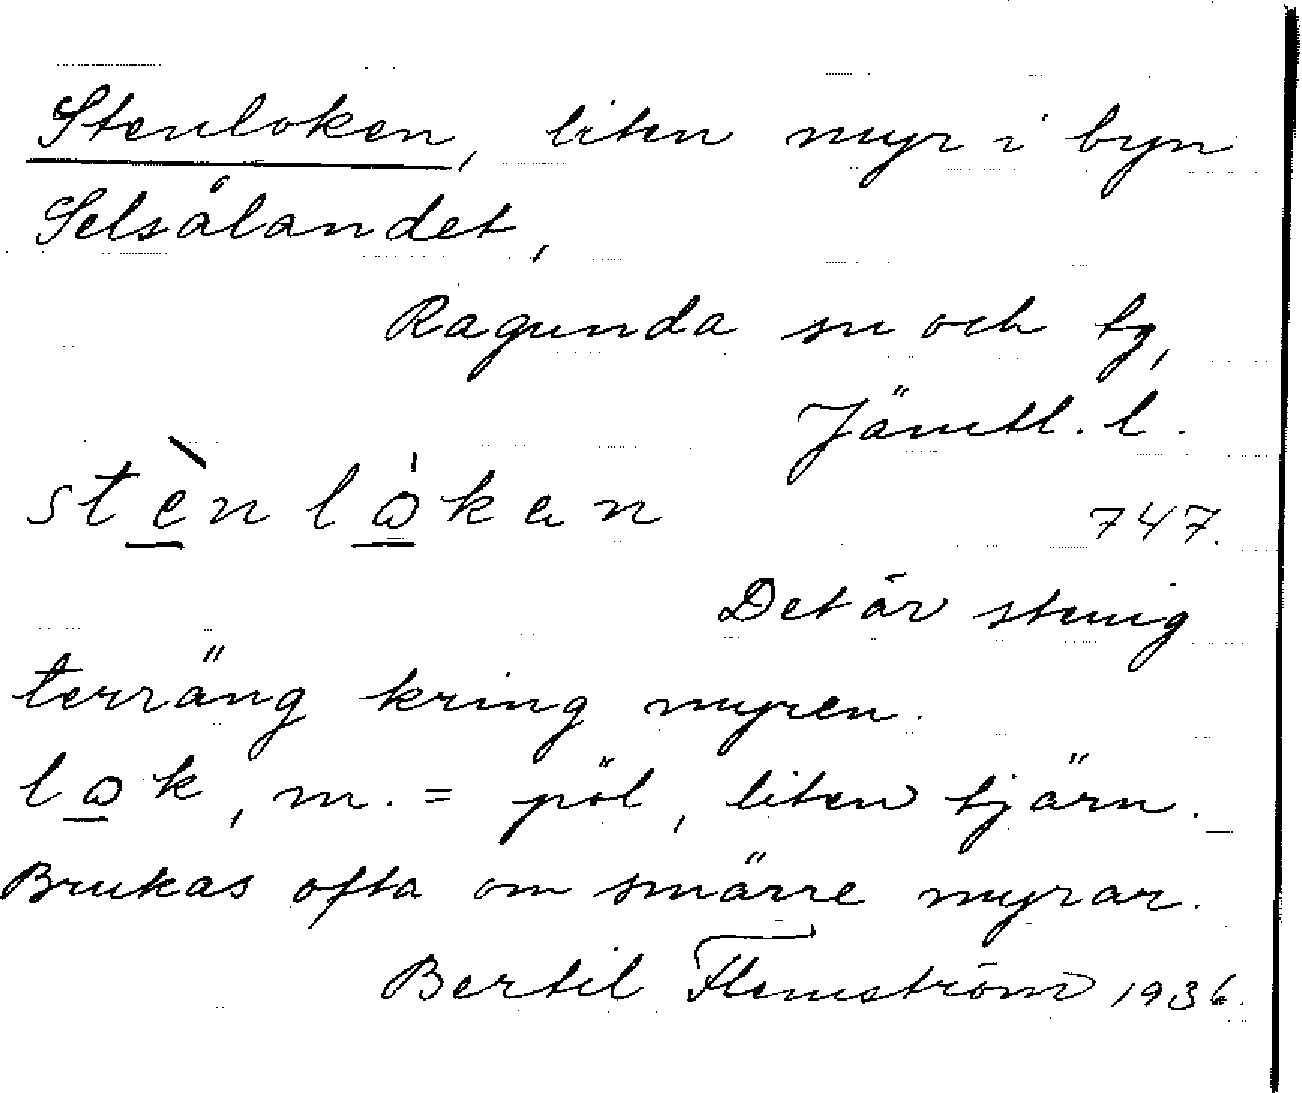 Stenloken, liten myr i byn
Selsålandet,
Ragunda sn och tg,
Jämtl. l.
stènlòkan
747.
Det är stenig
terräng kring myren.
lok, m. = pöl, liten tjärn.
Brukas ofta om smärre myrar.
Bertil Flemström 1936.